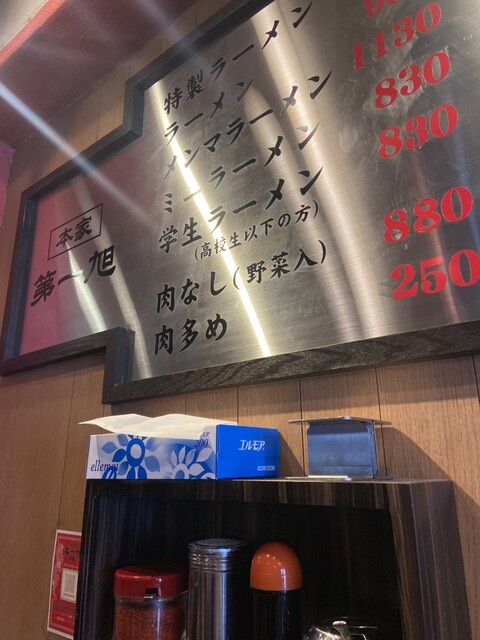 本家
第一旭
特製ラーメン
ラーメン
メンマラーメン
ミニラーメン
学生ラーメン
(高校生以下の方)
肉なし(野菜入)
肉多め
1130
830
830
880
250
エルモア
ellemoi
200